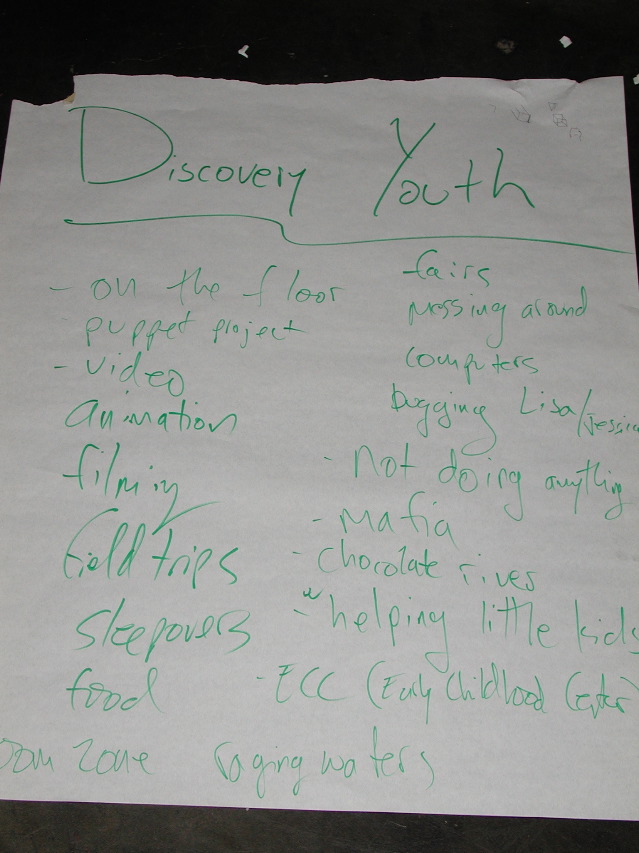 Discovery Youth
- on the floor
puppet project
- video
animation
filming
field trips
sleepovers
food
zone
fairs
messing around
computers
bugging Lisa/Jessica
- not doing anything
- mafia
- chocolate rives
- "helping little kids
- ECC (Early Childhood Center)
raging waters